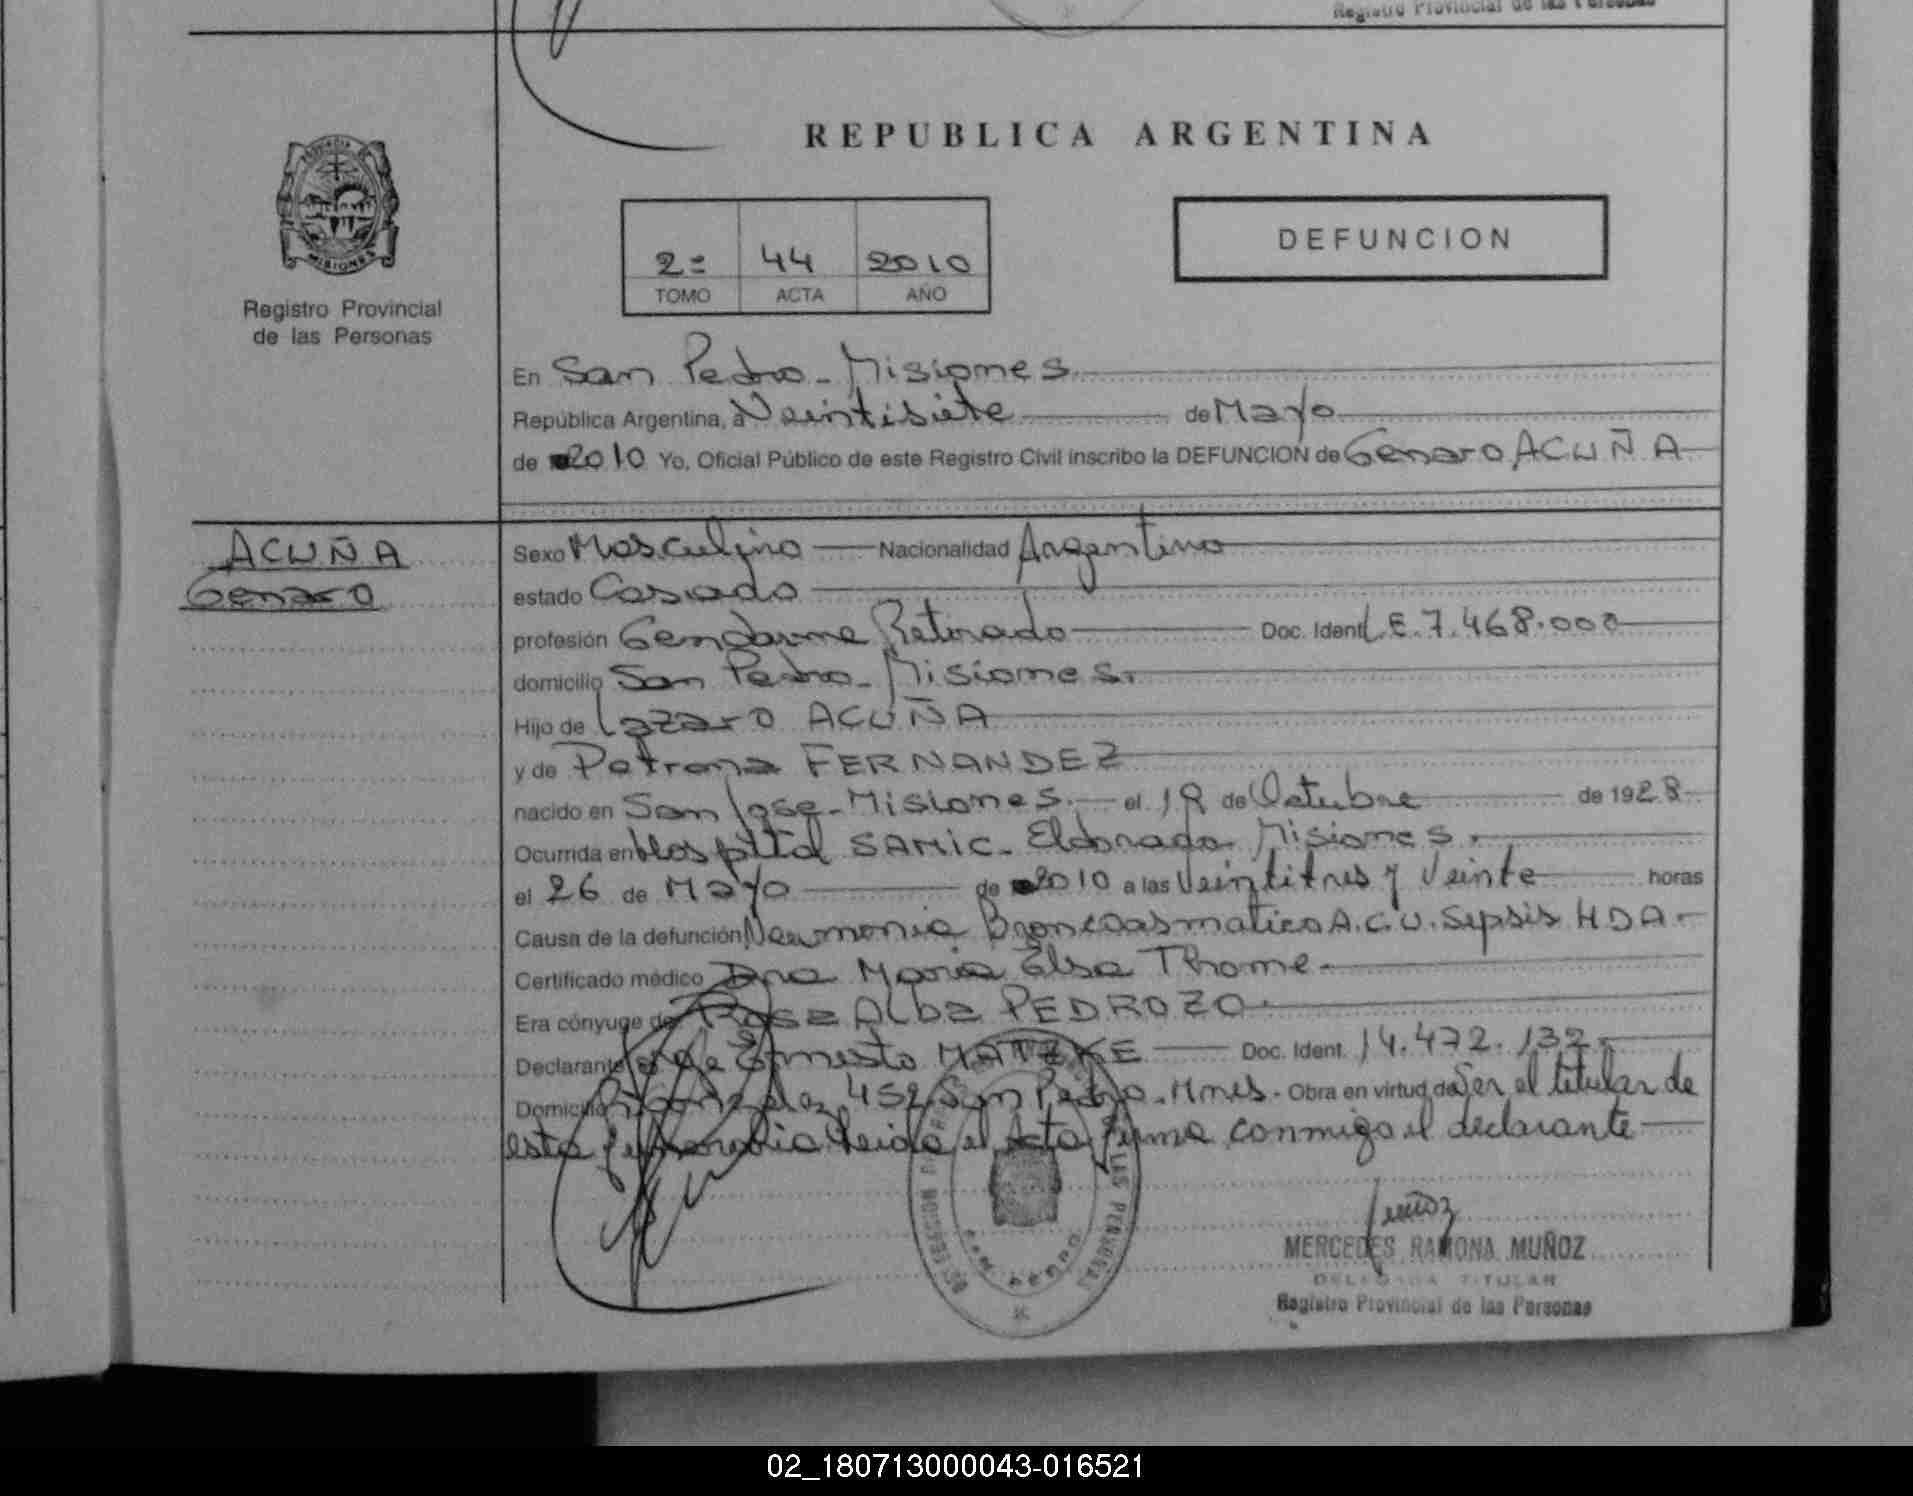 Registro Provincial de las Personas
REPUBLICA ARGENTINA
PROVINCIA DE
MISIONES
Registro Provincial
de las Personas
2= 44 2010
TOMO ACTA AÑO
DEFUNCION
En San Pedro - Misiones
República Argentina, a Veintisiete de Mayo
de 2010 Yo, Oficial Público de este Registro Civil inscribo la DEFUNCION de Genaro ACUÑA
ACUÑA
Genaro
Sexo Masculino Nacionalidad Argentino
estado Casado
profesión Gendarme Retirado Doc. Ident L.E. 7.468.000
domicilio San Pedro - Misiones.
Hijo de Lazaro ACUÑA
y de Petrona FERNANDEZ
nacido en San Jose - Misiones. el 19 de Octubre de 1928
Ocurrida en Hospital SAMIC - Eldorado Misiones.
el 26 de Mayo de 2010 a las Veintitres y Veinte horas
Causa de la defunción Neumonia Broncoasmatica A.C.V. Sepsis HDA
Certificado médico Dra Maria Elsa Thome
Era cónyuge de Rosa Alba PEDROZO.
Declarante Jorge Ernesto MATZKE Doc. Ident. 14.472.132
Domicilio 452 San Pedro - Mnes. Obra en virtud de Ser el titular de
esta funeraria leida el Acta firma conmigo el declarante
Muñoz
MERCEDES RAMONA MUÑOZ
DELEGADA TITULAR
Registro Provincial de las Personas
LAS PERSONAS
SAN PEDRO
02_180713000043-016521